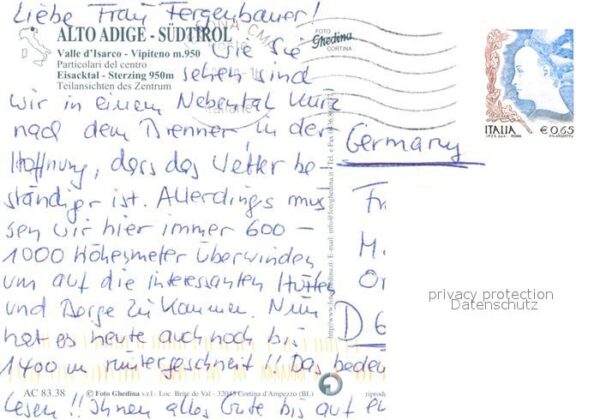 Liebe Frau Fergenbauer!
ALTO ADIGE - SÜDTIROL
Valle d'Isarco - Vipiteno m.950
Particolari del centro
Eisacktal - Sterzing 950m
Teilansichten des Zentrum
FOTO
Ghedina
CORTINA
Wie Sie
sehen sind
wir in einem Nebental kurz
nach dem Brenner, in der
Hoffnung, dass das Wetter be-
ständiger ist. Allerdings mus
sen wir hier immer 600 -
1000 Höhenmeter überwinden
um auf die interessanten Hütten
und Berge zu kommen. Nun
hat es heute auch noch bis
1400 m runtergeschneit!! Das bedeu
lesen!! Ihnen alles Gute bis auf
ITALIA € 0,65
Germany
Fr
M.
Or
D 6
privacy protection
Datenschutz
AC 83.38
© Foto Ghedina s.r.l. - Loc. Brite de Val - 32043 Cortina d'Ampezzo (BL)